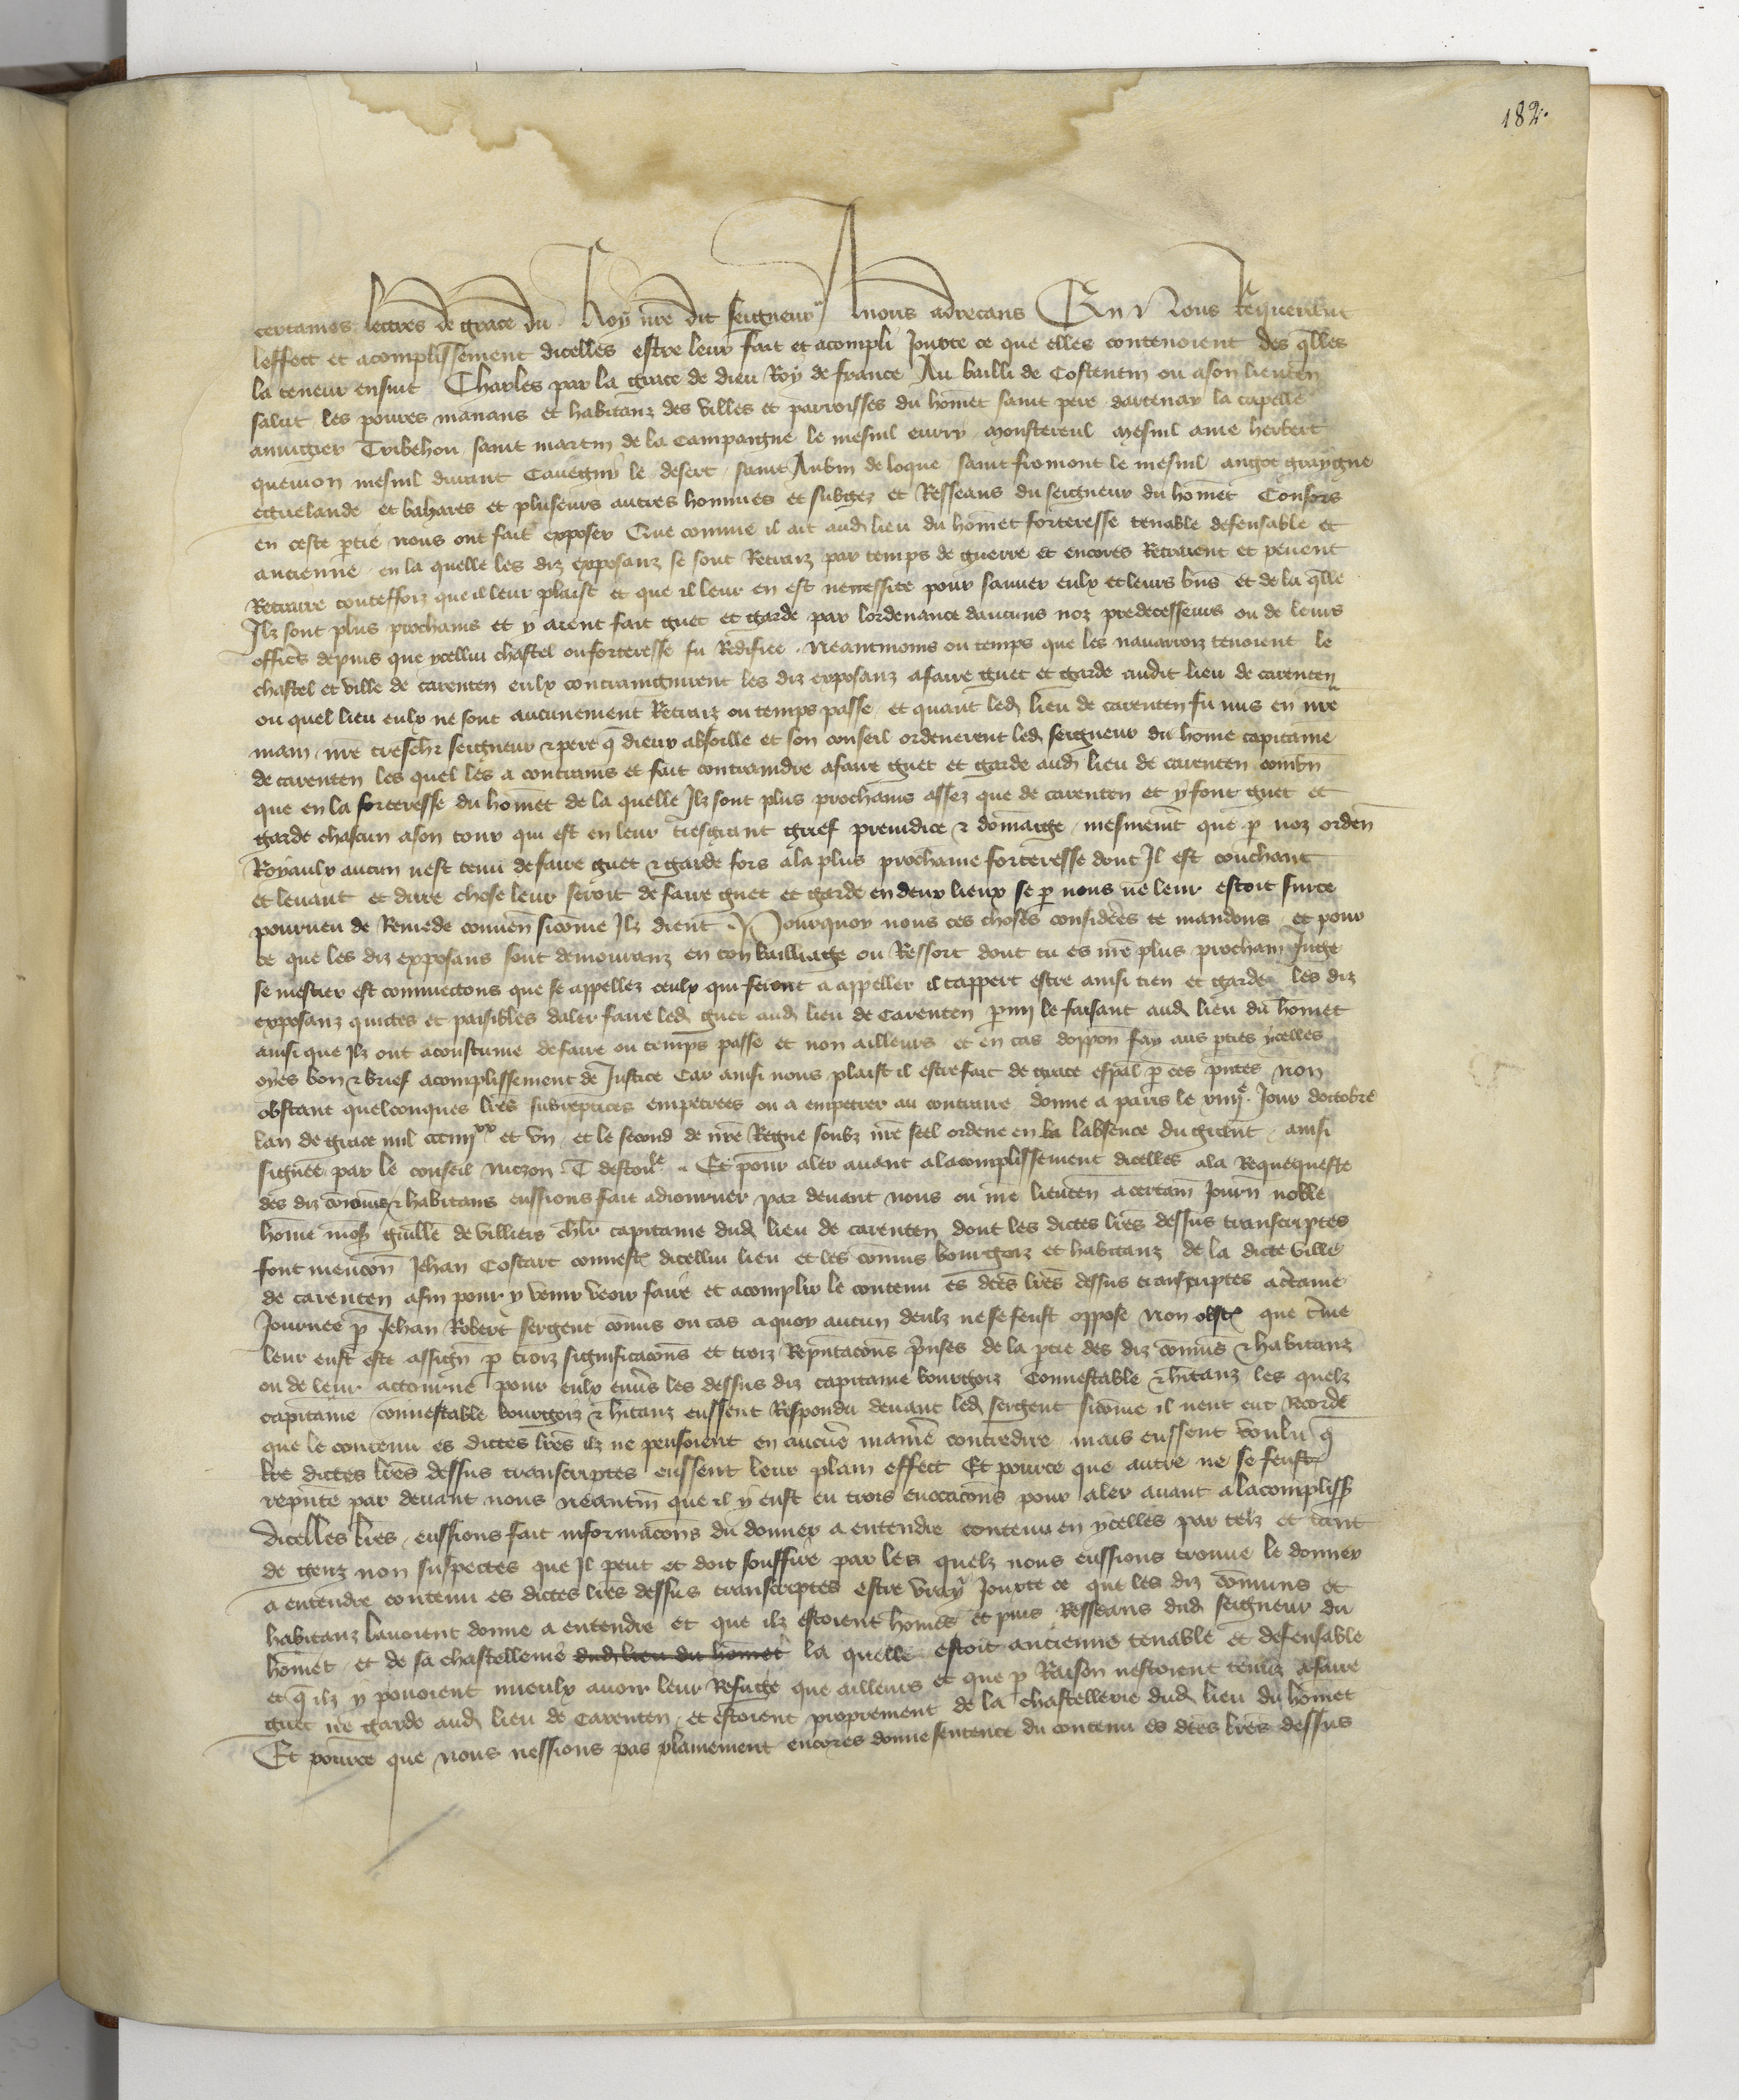 182.
certaines lettres de grace du Roy nre dit seigneur A nous adrecans En Nous Requerant
leffect et acomplissement dicelles estre leur fait et acompli Jouxte ce que elles contenoient des qlles
la teneur ensuit Charles par la grace de dieu Roy de france Au bailli de Costentin ou a son lieuten
salut les poures manans et habitanz des villes et parroisses du homet saint pere dartenay la capelle
annigier Tribehou saint martin de la Campaigne le mesnil eurry monstereul mesnil ame herbert
quemon mesnil durant Cauegny le desert saint Aubin de loque saint fromont le mesnil angot graygne
eguelande et bahares et pluseurs autres hommes et subgez et Resseans du seigneur du homet Consors
en ceste ptie nous ont fait exposer Que comme il ait aud lieu du homet forteresse tenable defensable et
ancienne en la quelle les diz exposanz se sont Retraiz par temps de guerre et encores Retraient et peuent
Retraire touteffoiz que il leur plaist et que il leur en est necessite pour sauuer eulx et leurs bns et de la qlle
Ilz sont plus prochains et y aient fait guet et garde par lordenance daucuns noz predecesseurs ou de leurs
offices depuis que ycellui chastel ou forteresse fu Redifiee Neantmoins ou temps que les nauarroiz tenoient le
chastel et ville de carenten eulx contraingnirent les diz exposanz a faire guet et garde audit lieu de carenten
ou quel lieu eulx ne sont aucunement Retraiz ou temps passe et quant led lieu de carenten fu mis en nre
main nre treschr seigneur & pere q dieux absoille et son conseil ordenerent led seigneur du home capitaine
de carenten les quel les a contrains et fait contraindre a faire guet et garde aud lieu de carenten combn
que en la forteresse du homet de la quelle Ilz sont plus prochains assez que de carenten et y font guet et
garde chascun a son tour qui est en leur tresgrant grief preiudice & domaige mesmemt que p noz orden
Royaulx aucun nest tenu de faire guet & garde fors a la plus prochaine forteresse dont Il est couchant
et leuant et dure chose leur seroit de faire guet et garde en deux lieux se p nous ne leur estoit sur ce
pourueu de Remede conuen sicome Ilz dient Pourquoy nous ces choses considerees te mandons et pour
ce que les diz exposans sont demouranz en ton bailliage ou Ressort dont tu es nre plus prochain Juge
se mestier est commettons que se appellez ceulx qui feront a appeller il tappert estre ainsi tien et garde les diz
exposanz quictes et paisibles daler faire led guet aud lieu de Carenten pmy le faisant aud lieu du homet
ainsi que Ilz ont acoustume de faire ou temps passe et non ailleurs et en cas doppon fay aus pties ycelles
oyes bon & brief acomplissement de Justice Car ainsi nous plaist il estre fait de grace espal p ces pntes non
obstant quelconques lres subreptices empetrees ou a empetrer au contraire donne a paris le xiiije Jour doctobre
lan de grace mil ccc iiijxx et vn et le second de nre Regne soubz nre seel ordene en la labsence du grant ainsi
signee par le conseil T destoule Et pour aler auant a lacomplissement dicelles a la Requequeste
des diz comuns & habitans eussions fait adiourner par deuant nous ou nre lieuten a certain Journ noble
home mons guille de villiers chlr capitaine dud lieu de carenten dont les dictes lres dessus transcriptes
font mencon Jehan Costart connest dicellui lieu et les comuns bourgoiz et habitanz de la dicte ville
de carenten afin pour y venir veoir faire et acomplir le contenu es dces lres dessus transcriptes a ctaine
Journee p Jehan Robert sergent comis ou cas a quoy aucun deulz ne se feust oppose Non obst que time
leur eust este assign p troiz significacons et troiz Repntacons pinses de la ptie des diz comuns & habitanz
ou de leur attourne pour eulx enus les dessus diz capitaine bourgoiz Connestable & hitanz les quelz
capitaine connestable bourgoiz & hitanz eussent Respondu deuant led sergent sicome il nent eut Recorde
que le contenu es dictes lres ilz ne pensoient en aucune maniere contredire mais eussent voulu q
les dictes lres dessus transcriptes eussent leur plain effect Et pource que autre ne se feust
repnte par deuant nous neantm que il y eust eu trois euocacons pour aler auant a lacompliss
dicelles lres eussions fait informacons du donner a entendre contenu en ycelles par telz et tant
de genz non suspectes que Il peut et doit souffire par les quelz nous eussions trouue le donner
a entendre contenu es dictes lres dessus transcriptes estre vray Jouxte ce que les diz comuns et
habitanz lauoient donne a entendre et que ilz estoient homes et puis Resseans dud seigneur du
homet et de sa chastellenie dud lieu du homet la quelle estoit ancienne tenable et defensable
et q ilz y pouoient mieulx auoir leur Refuge que ailleurs et que p Raison nestoient tenuz a faire
guet ne garde aud lieu de Carenten et estoient proprement de la chastellerie dud lieu du homet
Et pource que nous nessions pas plainement encores donne sentence du contenu es dces lres dessus